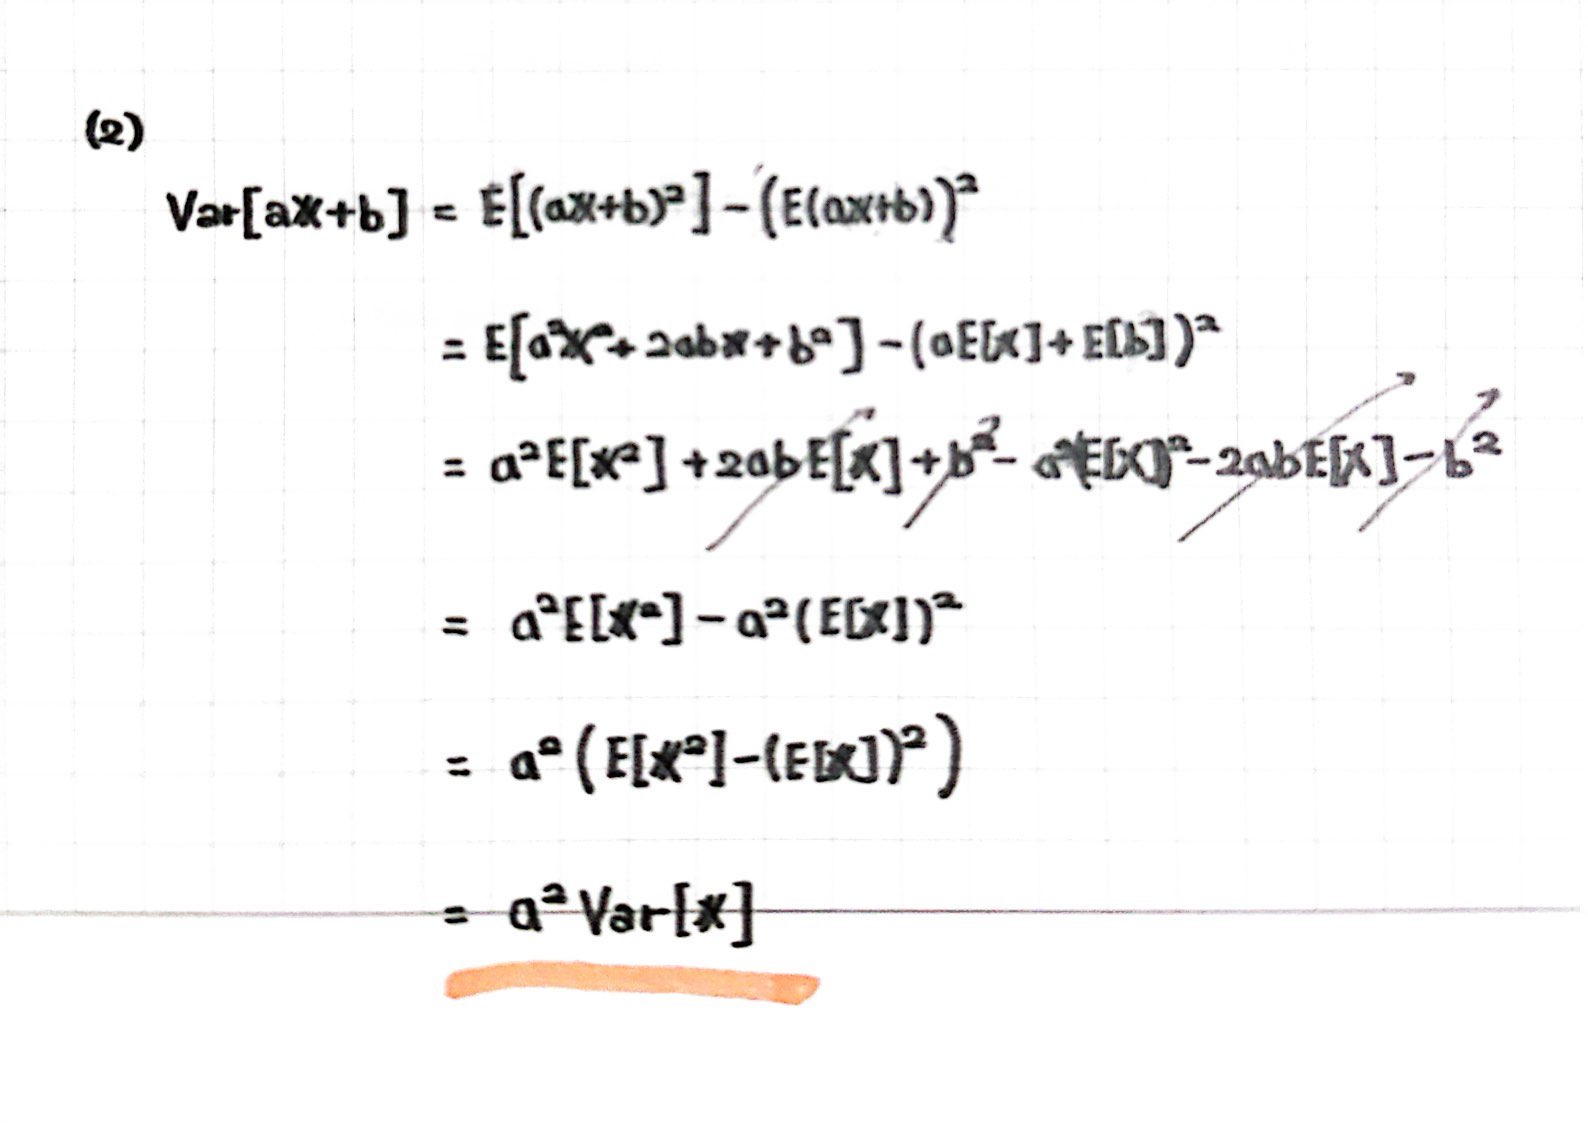 (2)
Var[aX+b] = E[(aX+b)²] - (E(aX+b))²
= E[a²X²+ 2abX + b²] - (aE[X] + E[b])²
= a²E[X²] + 2abE[X] + b² - a²(E[X])² - 2abE[X] - b²
= a²E[X²] - a²(E[X])²
= a²(E[X²]-(E[X])²)
= a²Var[X]